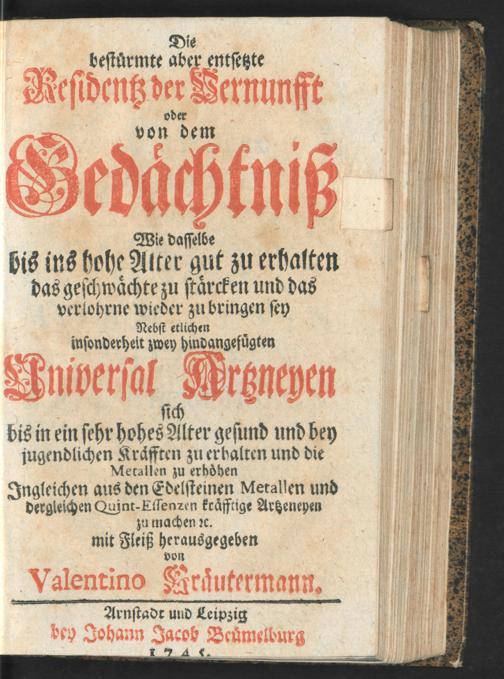 Die
bestürmte aber entsetzte
Residentz der Vernunfft
oder
von dem
Gedächtniß
Wie dasselbe
bis ins hohe Alter gut zu erhalten
das geschwächte zu stärcken und das
verlohrne wieder zu bringen sey
Nebst etlichen
insonderheit zwey hindangefügten
Universal Artzneyen
sich
bis in ein sehr hohes Alter gesund und bey
jugendlichen Kräfften zu erhalten und die
Metallen zu erhöhen
Ingleichen aus den Edelsteinen Metallen und
dergleichen Quint-Essenzen kräfftige Artzeneyen
zu machen ꝛc.
mit Fleiß herausgegeben
von
Valentino Kräutermann.
Arnstadt und Leipzig
bey Johann Jacob Beumelburg
1745.